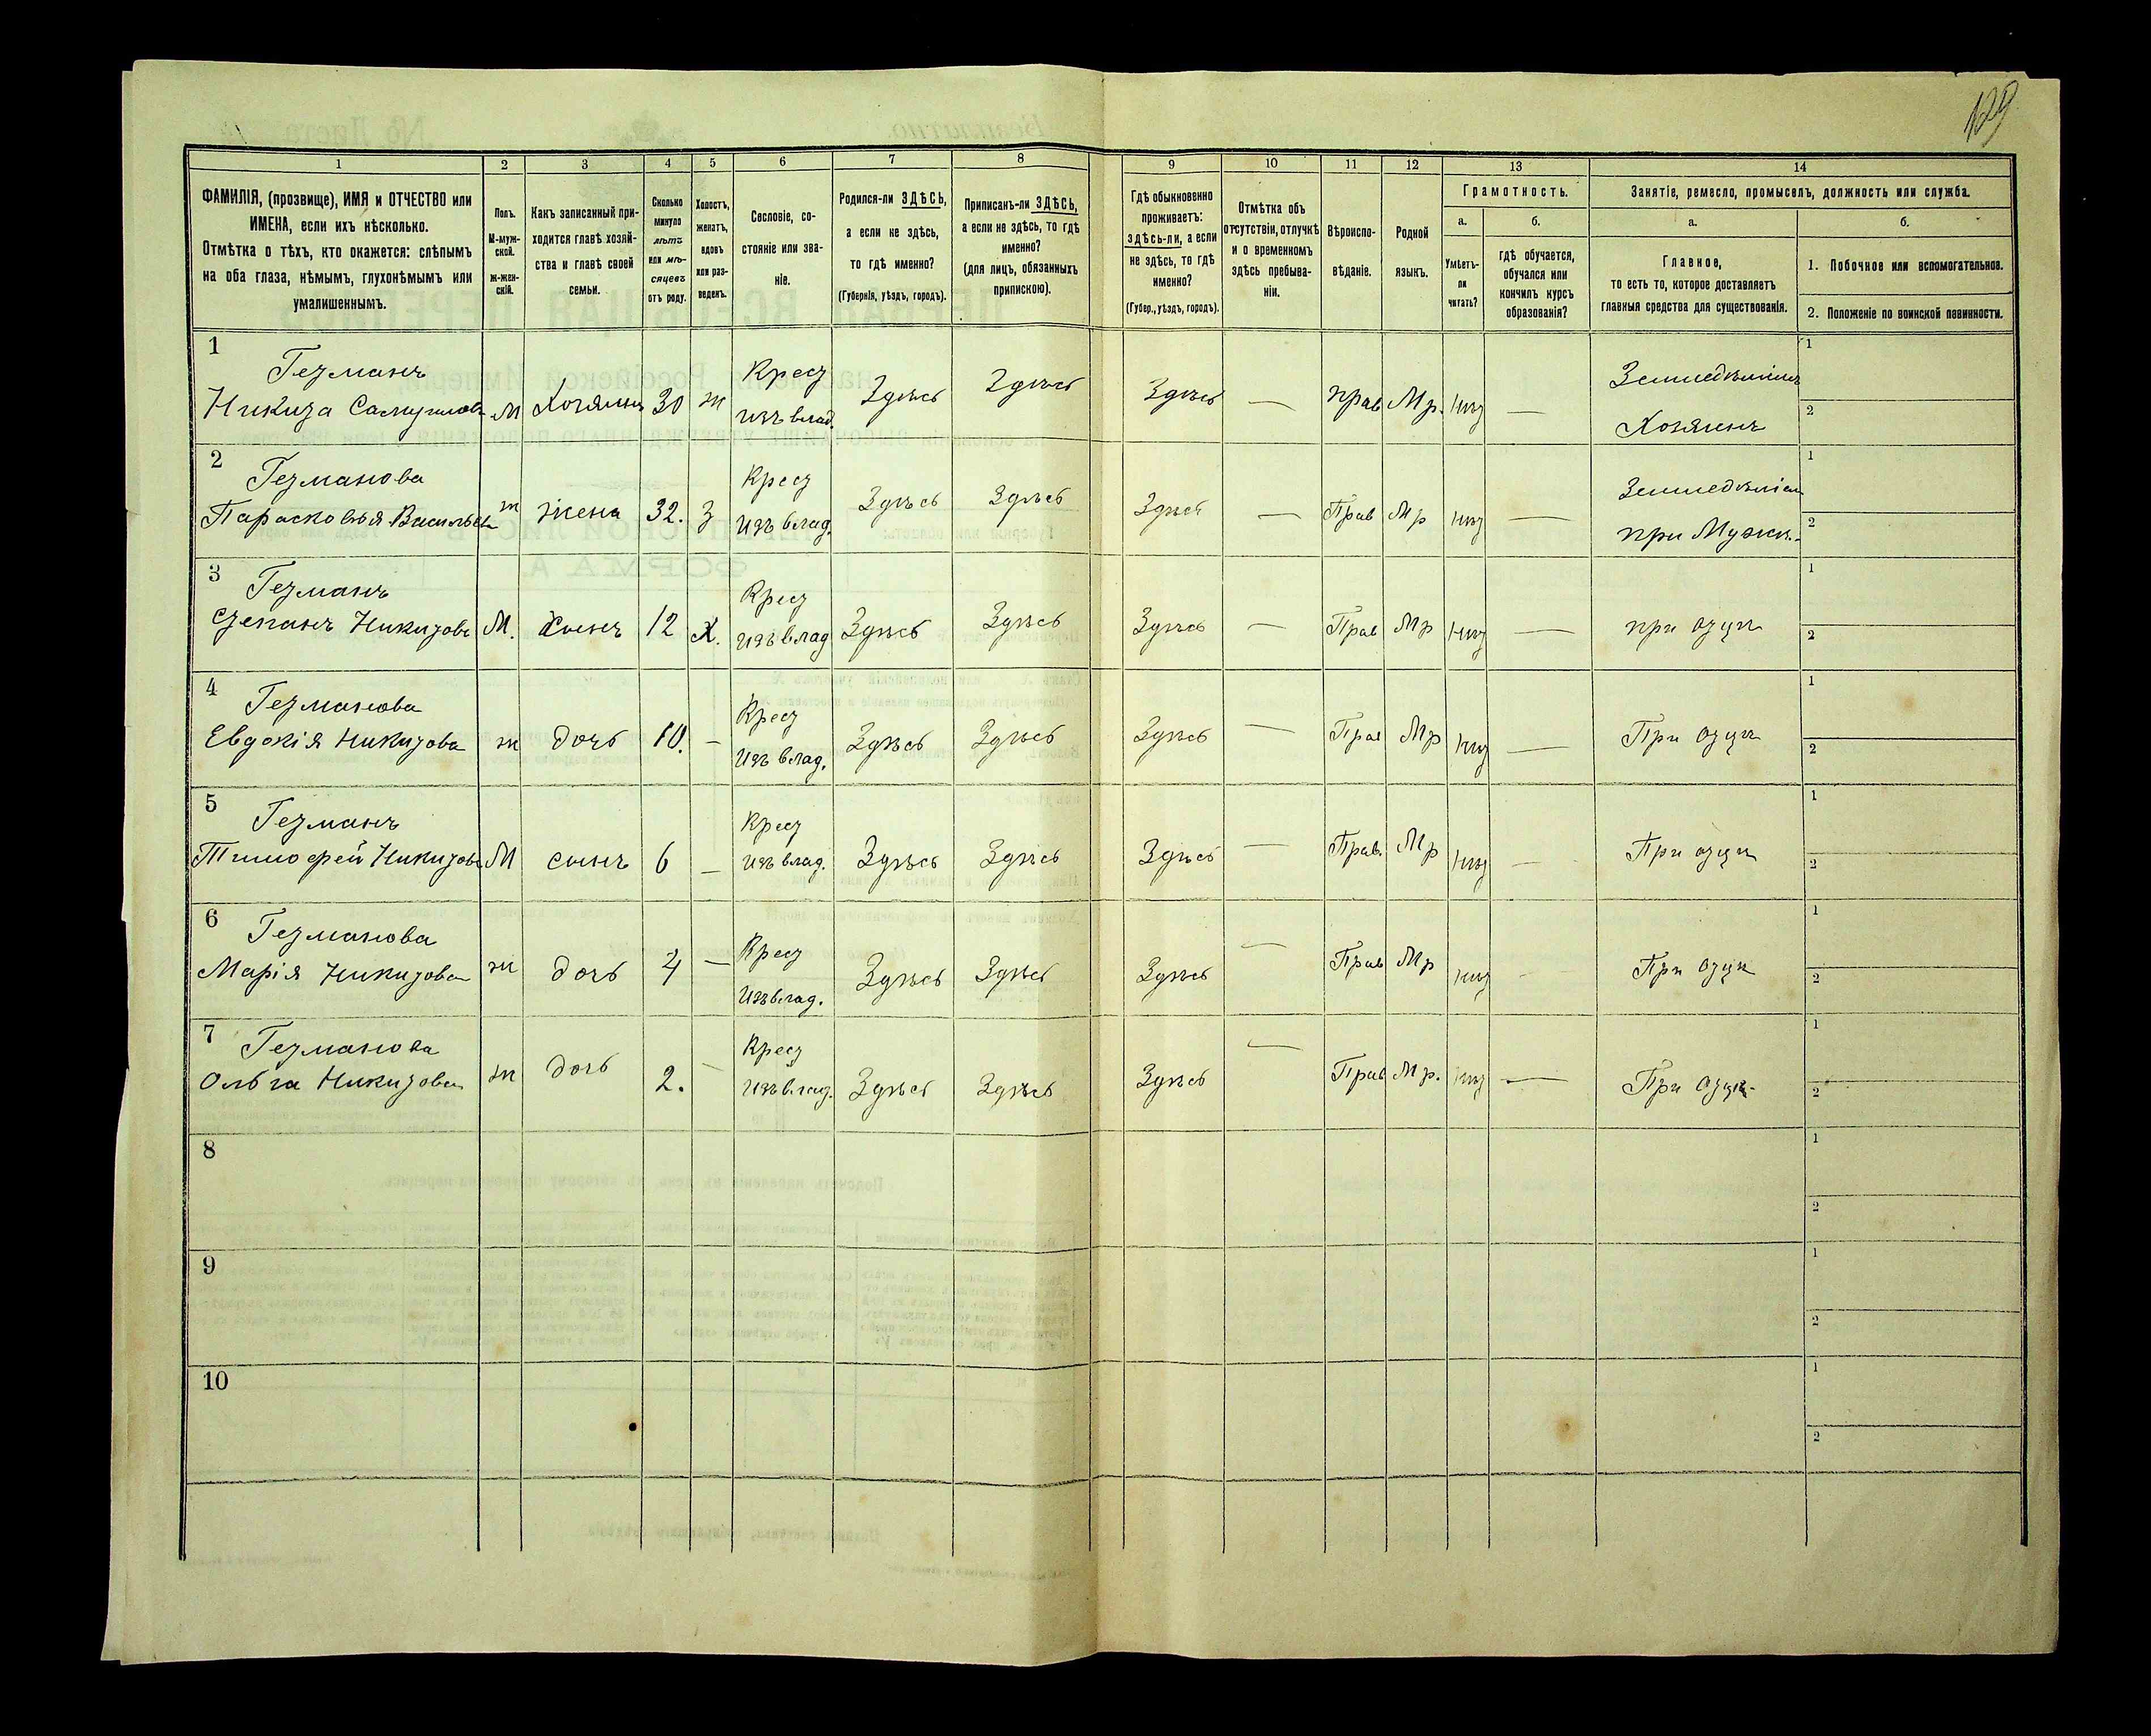 129
1 2 3 4 5 6 7 8 9 10 11 12 13 14
ФАМИЛІЯ, (прозвище), ИМЯ и ОТЧЕСТВО или
ИМЕНА, если ихъ нѣсколько.
Отмѣтка о тѣхъ, кто окажется: слѣпымъ
на оба глаза, нѣмымъ, глухонѣмымъ или
умалишеннымъ.
Полъ.
М-муж-
ской.
ж-жен-
скій.
Какъ записанный при-
ходится главѣ хозяй-
ства и главѣ своей
семьи.
Сколько
минуло
лѣтъ
или мѣ-
сяцевъ
отъ роду.
Холостъ,
женатъ,
вдовъ
или раз-
веденъ.
Сословіе, со-
стояніе или зва-
ніе.
Родился-ли ЗДѢСЬ,
а если не здѣсь,
то гдѣ именно?
(Губернія, уѣздъ, городъ).
Приписанъ-ли ЗДѢСЬ,
а если не здѣсь, то гдѣ
именно?
(для лицъ, обязанныхъ
припискою).
Гдѣ обыкновенно
проживаетъ:
здѣсь-ли, а если
не здѣсь, то гдѣ
именно?
(Губер., уѣздъ, городъ).
Отмѣтка объ
отсутствіи, отлучкѣ
и о временномъ
здѣсь пребыва-
ніи.
Вѣроиспо-
вѣданіе.
Родной
языкъ.
Грамотность.
а.
Умѣетъ-
ли
читать?
б.
гдѣ обучается,
обучался или
кончилъ курсъ
образованія?
Занятіе, ремесло, промыселъ, должность или служба.
а.
Главное,
то есть то, которое доставляетъ
главныя средства для существованія.
б.
1. Побочное или вспомогательное.
2. Положеніе по воинской повинности.
1
Гетманъ
Никита М Хозяинъ 30 ж
Крест
изъ влад.
Здѣсь Здѣсь Здѣсь — прав Мр. нѣт —
Хозяинъ
1
2
2
Гетманова
Парасковья Васильева ж жена 32. з
Крест
изъ влад.
Здѣсь Здѣсь Здѣсь — Прав Мр нѣт —
при Мужѣ
1
2
3
Гетманъ
Степанъ Никитовъ М. Сынъ 12 Х.
Крест
изъ влад
Здѣсь Здѣсь Здѣсь — Прав Мр нѣт — при отцѣ
1
2
4
Гетманова
Евдокія Никитова ж дочь 10. —
Крест
изъ влад.
Здѣсь Здѣсь Здѣсь — Прав Мр нѣт — При отцѣ
1
2
5
Гетманъ
Тимофей Никитовъ М сынъ 6 —
Крест
изъ влад.
Здѣсь Здѣсь Здѣсь — Прав. Мр нѣт — При отцѣ
1
2
6
Гетманова
Марія Никитова ж дочь 4 —
Крест
изъ влад.
Здѣсь Здѣсь Здѣсь — Прав Мр нѣт - При отцѣ
1
2
7
Гетманова
Ольга Никитова ж дочь 2. —
Крест
изъ влад.
Здѣсь Здѣсь Здѣсь — Прав Мр. нѣт — При отцѣ
1
2
8
1
2
9
1
2
10
1
2